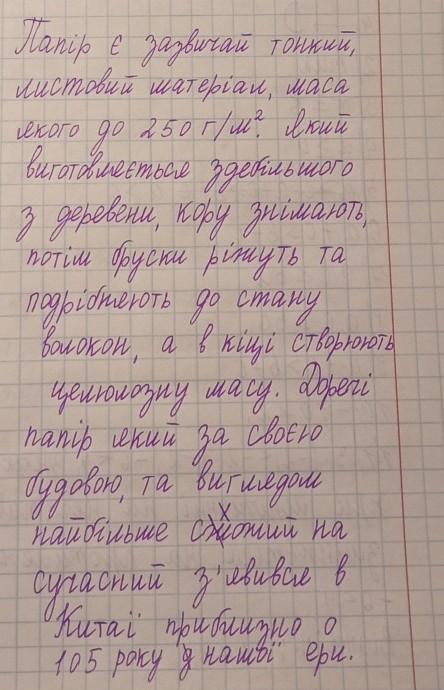 Папір є зазвичай тонкий,
листовий матеріал, маса
якого до 250 г/м². Який
виготовляється здебільшого
з деревени, кору знімають,
потім бруски ріжуть та
подрібнюють до стану
волокон, а в кіці створюють
целюлозну масу. Доречі
папір який за своєю
будовою, та виглядом
найбільше схожий на
сучасний з'явився в
Китаї приблизно о
105 року нашої ери.